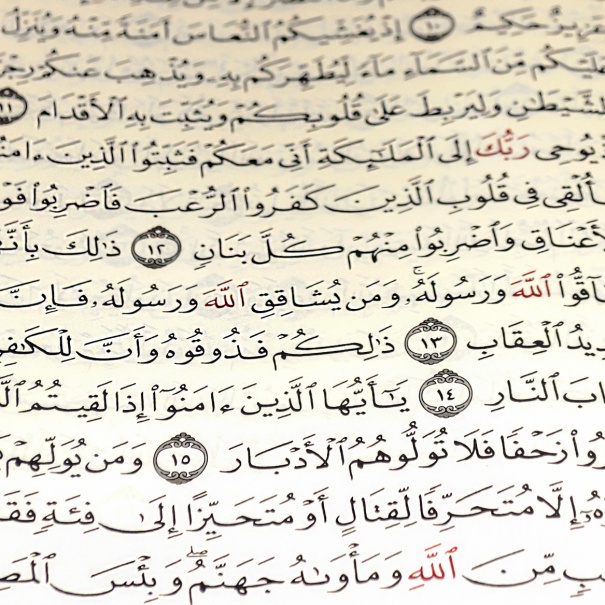 حَكِيمٌ ١٠ إِذْ يُغَشِّيكُمُ ٱلنُّعَاسَ أَمَنَةً مِّنْهُ وَيُنَزِّلُ
عَلَيْكُم مِّنَ ٱلسَّمَآءِ مَآءً لِّيُطَهِّرَكُم بِهِۦ وَيُذْهِبَ عَنكُمْ رِجْزَ
ٱلشَّيْطَٰنِ وَلِيَرْبِطَ عَلَىٰ قُلُوبِكُمْ وَيُثَبِّتَ بِهِ ٱلْأَقْدَامَ ١١
يُوحِى رَبُّكَ إِلَى ٱلْمَلَٰٓئِكَةِ أَنِّى مَعَكُمْ فَثَبِّتُوا۟ ٱلَّذِينَ ءَامَنُ
أُلْقِى فِى قُلُوبِ ٱلَّذِينَ كَفَرُوا۟ ٱلرُّعْبَ فَٱضْرِبُوا۟ فَوْ
ٱلْأَعْنَاقِ وَٱضْرِبُوا۟ مِنْهُمْ كُلَّ بَنَانٍ ١٢ ذَٰلِكَ بِأَنَّهُ
آقُّوا۟ ٱللَّهَ وَرَسُولَهُۥۚ وَمَن يُشَاقِقِ ٱللَّهَ وَرَسُولَهُۥ فَإِنَّ
دِيدُ ٱلْعِقَابِ ١٣ ذَٰلِكُمْ فَذُوقُوهُ وَأَنَّ لِلْكَٰفِ
ابَ ٱلنَّارِ ١٤ يَٰٓأَيُّهَا ٱلَّذِينَ ءَامَنُوٓا۟ إِذَا لَقِيتُمُ ٱلَّ
رُوا۟ زَحْفًا فَلَا تُوَلُّوهُمُ ٱلْأَدْبَارَ ١٥ وَمَن يُوَلِّهِمْ
هُۥٓ إِلَّا مُتَحَرِّفًا لِّقِتَالٍ أَوْ مُتَحَيِّزًا إِلَىٰ فِئَةٍ فَقَ
بٍ مِّنَ ٱللَّهِ وَمَأْوَىٰهُ جَهَنَّمُۖ وَبِئْسَ ٱلْمَصِ